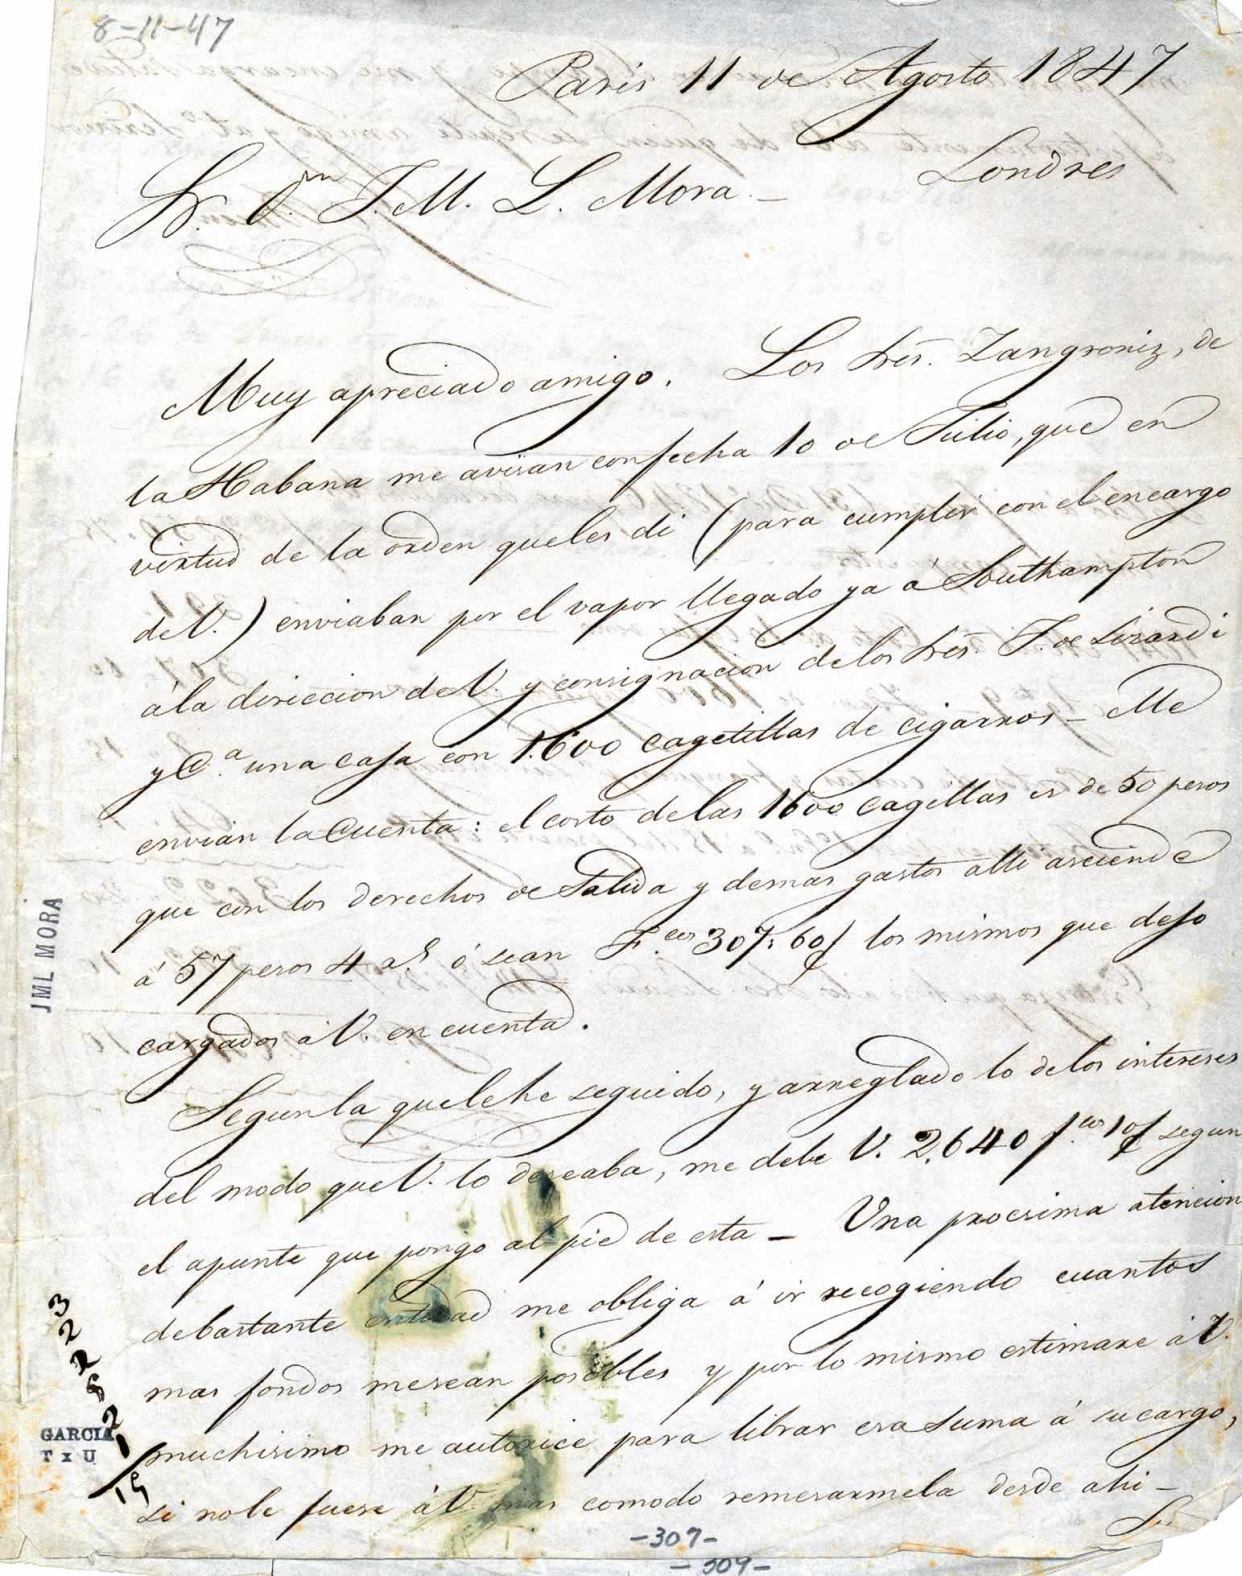 8-11-47
Paris 11 de Agosto 1847
Londres
Sr. Dn. J. M. L. Mora.—
Muy apreciado amigo. Los Sres. Zangroniz, de
la Habana me avisan con fecha 10 de Julio, que en
virtud de la orden que les di (para cumplir con el encargo
de V.) enviaban por el vapor llegado ya á Southampton
á la direccion de V. y consignacion de los Sres. F. de Lizardi
y Ca. una caja con 1.600 cagetillas de cigarros — Me
envian la Cuenta: el costo de las 1600 cagetillas es de 50 pesos
que con los derechos de Salida y demas gastos alli asciende
á 57 pesos 4 rs. ó sean Fcos 307: 60/ los mismos que dejo
cargados á V. en cuenta.
Segun la que le he seguido, y arreglado lo de los intereses
del modo que V. lo deseaba, me debe V. 2.640 fcos 10/ segun
el apunte que pongo al pie de esta — Una procsima atencion
de bastante entidad me obliga á ir recogiendo cuantos
mas fondos me sean posibles y por lo mismo estimare á V.
muchisimo me autorice para librar esa suma á su cargo,
si no le fuere á V. mas comodo remesarmela desde ahi —
JML MORA
GARCIA
-307-
-309-